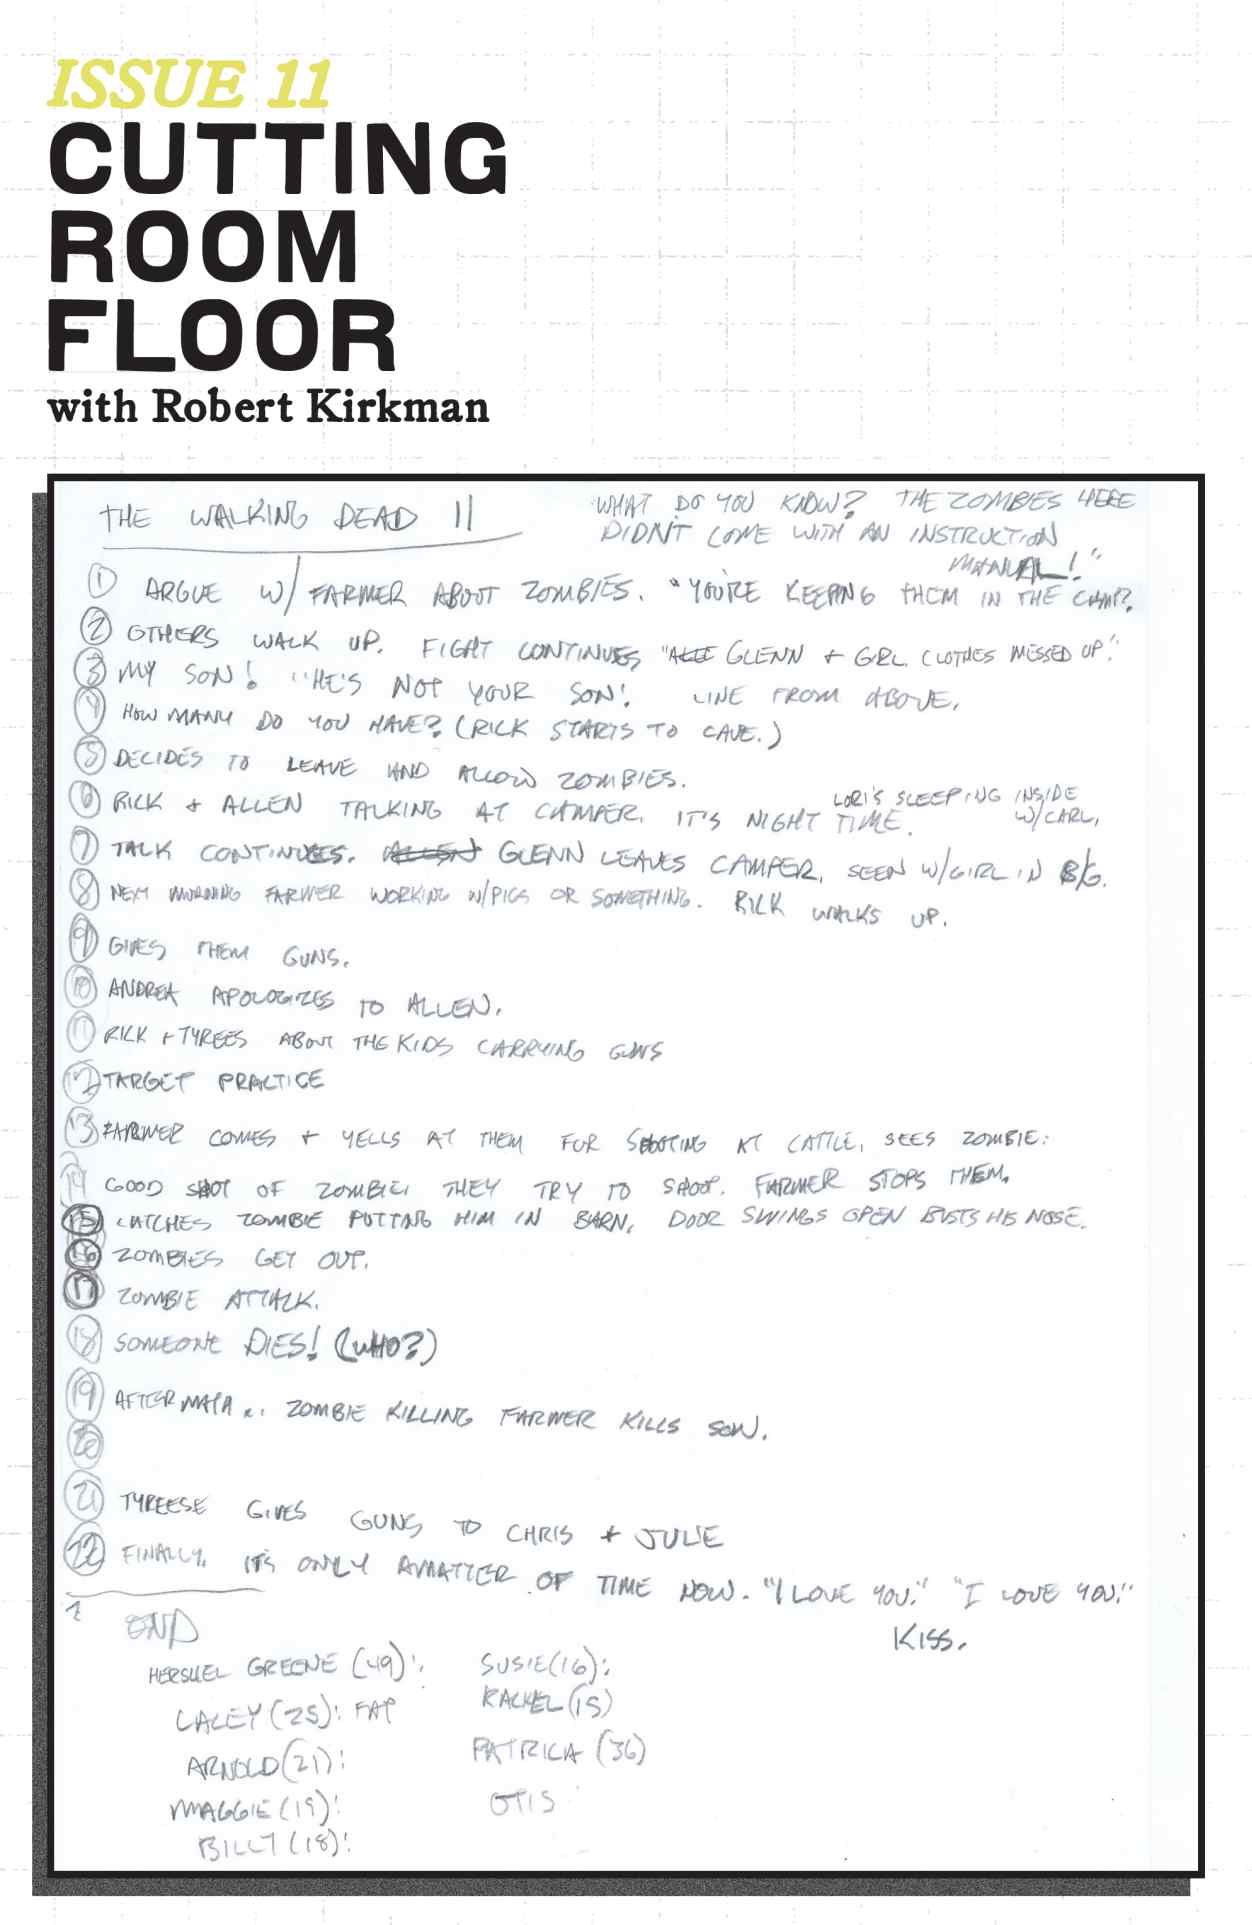 ISSUE 11
CUTTING
ROOM
FLOOR
with Robert Kirkman
THE WALKING DEAD 11
"WHAT DO YOU KNOW? THE ZOMBIES HERE
DIDN'T COME WITH AN INSTRUCTION
MANUAL!"
1 ARGUE W/ FARMER ABOUT ZOMBIES. "YOU'RE KEEPING THEM IN THE
2 OTHERS WALK UP. FIGHT CONTINUES, GLENN + GIRL. CLOTHES MESSED UP!"
3 MY SON! "HE'S NOT YOUR SON!" LINE FROM ABOVE.
4 HOW MANY DO YOU HAVE? (RICK STARTS TO CAVE.)
5 DECIDES TO LEAVE AND ALLOW ZOMBIES.
6 RICK + ALLEN TALKING AT CAMPER. IT'S NIGHT TIME. LORI'S SLEEPING INSIDE
W/CARL.
7 TALK CONTINUES. ALLEN GLENN LEAVES CAMPER, SEEN W/GIRL IN B/G.
8 NEXT MORNING FARMER WORKING W/PIGS OR SOMETHING. RICK WALKS UP.
9 GIVES THEM GUNS.
10 ANDREA APOLOGIZES TO ALLEN.
11 RICK + TYREES ABOUT THE KIDS CARRYING GUNS
12 TARGET PRACTICE
13 FARMER COMES + YELLS AT THEM FOR SHOOTING AT CATTLE, SEES ZOMBIE:
14 GOOD SHOT OF ZOMBIE, THEY TRY TO SHOOT. FARMER STOPS THEM.
15 CATCHES ZOMBIE PUTTING HIM IN BARN, DOOR SWINGS OPEN BUSTS HIS NOSE.
16 ZOMBIES GET OUT.
17 ZOMBIE ATTACK.
18 SOMEONE DIES! (WHO?)
19 AFTERMATH... ZOMBIE KILLING FARMER KILLS SON.
20
21 TYREESE GIVES GUNS TO CHRIS + JULIE
22 FINALLY, IT'S ONLY A MATTER OF TIME NOW. "I LOVE YOU." "I LOVE YOU."
KISS.
END
HERSHEL GREENE (49): SUSIE (16):
LACEY (25): FAT RACHEL (15)
ARNOLD (21): PATRICA (36)
MAGGIE (19): OTIS
BILLY (18):